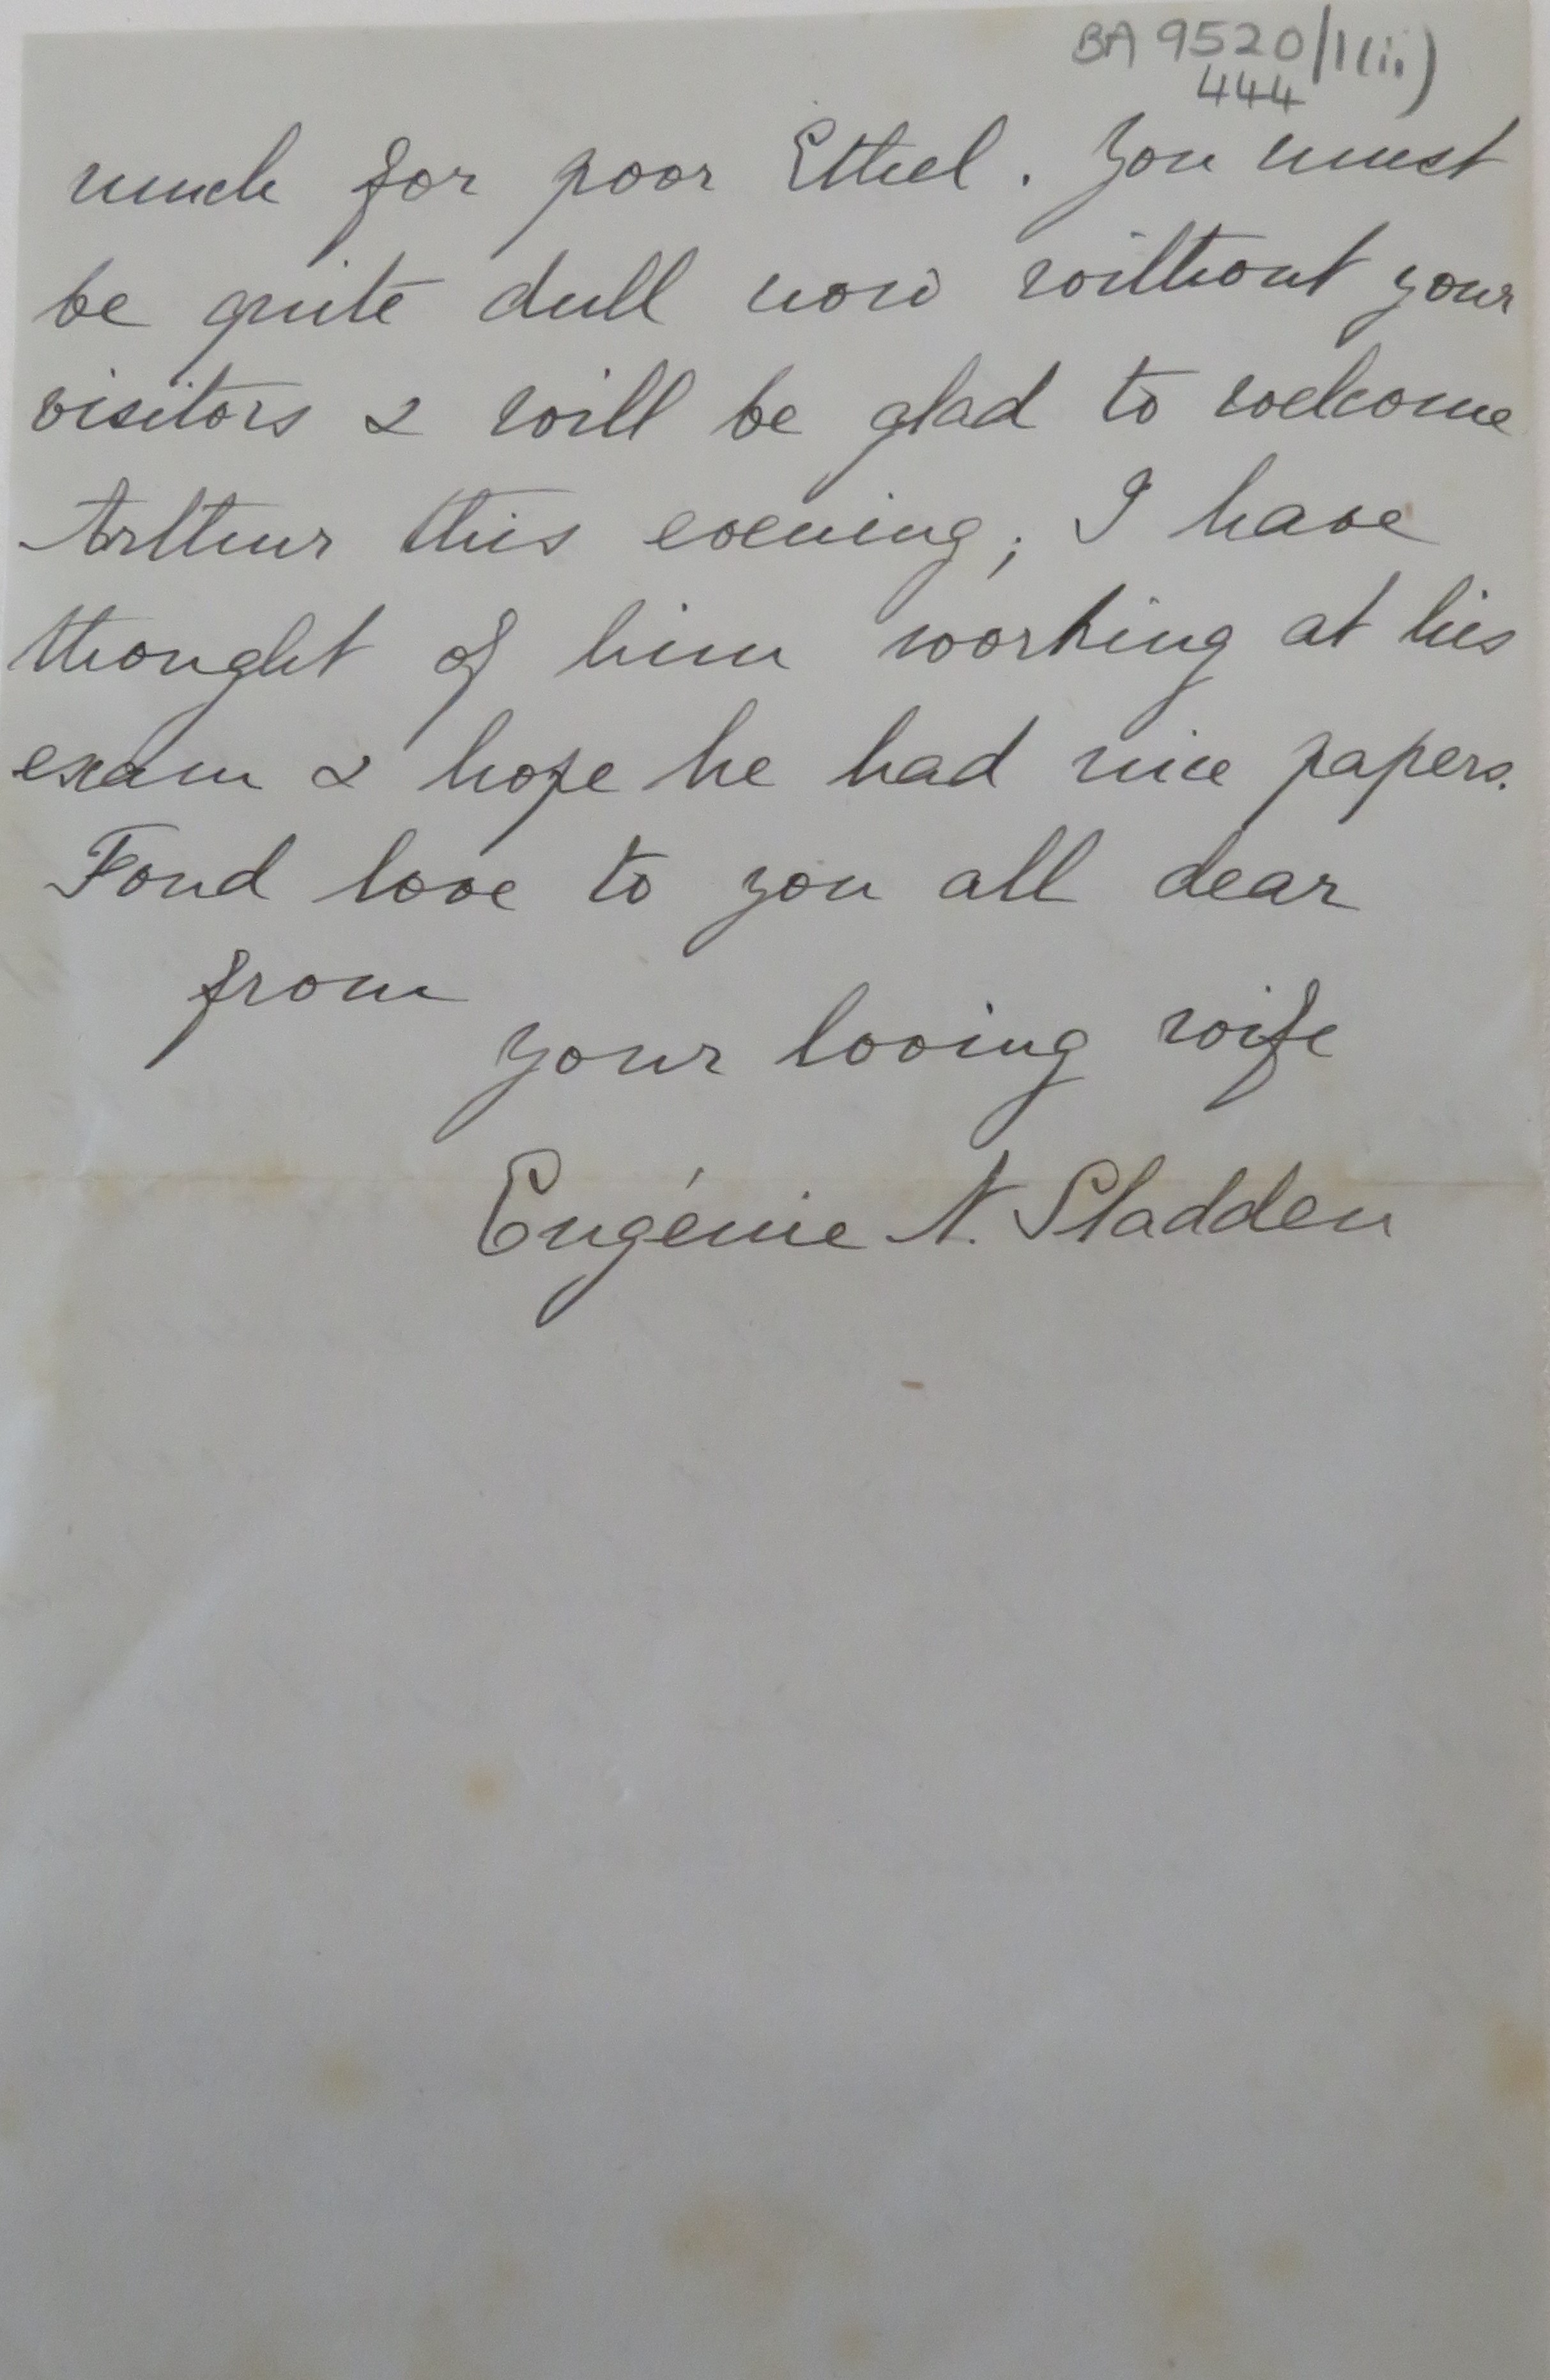 BA 9520/1(ii)
444
much for poor Ethel. You must
be quite dull now without your
visitors & will be glad to welcome
Arthur this evening; I have
thought of him working at his
exam & hope he had nice papers.
Fond love to you all dear
from
your loving wife
Eugénie N. Sladden